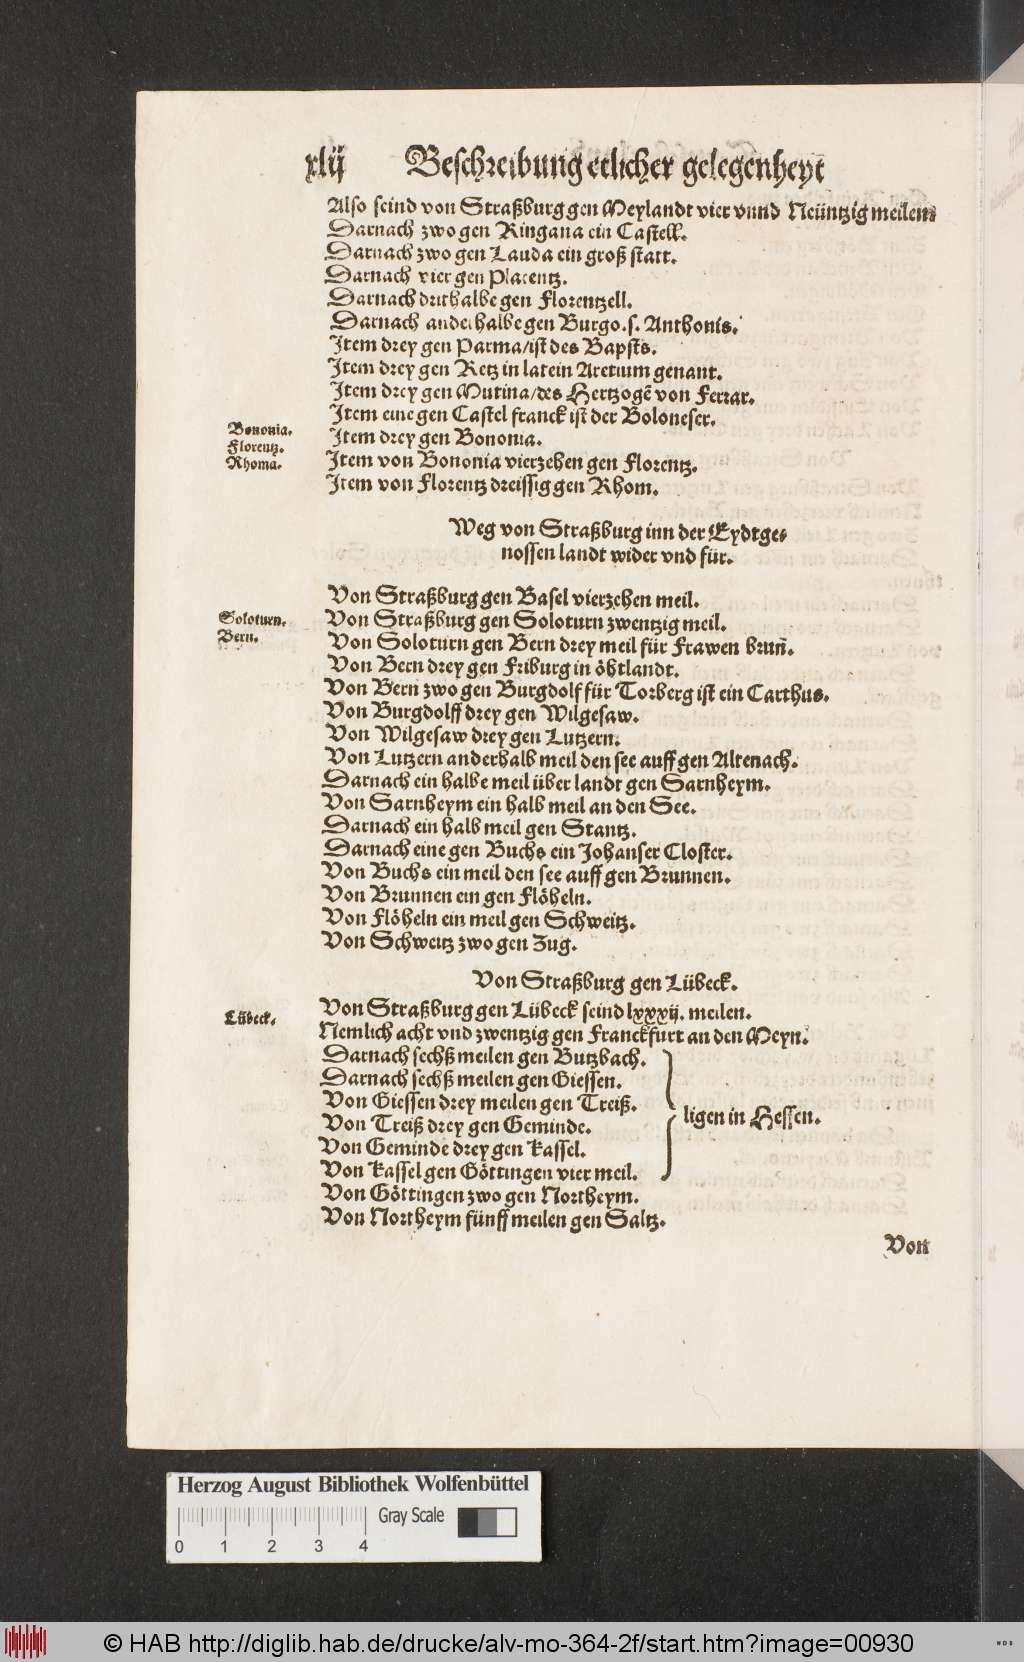 xlij Beschreibung etlicher gelegenheyt
Also seind von Straßburg gen Meylandt vier vnnd Neüntzig meilen.
Darnach zwo gen Ringana ein Castell.
Darnach zwo gen Lauda ein groß statt.
Darnach vier gen Placentz.
Darnach drithalbe gen Florentzell.
Darnach anderhalbe gen Burgo. s. Anthonis.
Item drey gen Parma/ist des Bapsts.
Item drey gen Retz in latein Aretium genant.
Item drey gen Mutina/des Hertzogẽ von Ferrar.
Item eine gen Castel franck ist der Boloneser.
Bononia.
Item drey gen Bononia.
Florentz.
Item von Bononia vierzehen gen Florentz.
Rhoma.
Item von Florentz dreissig gen Rhom.
Weg von Straßburg inn der Eydtge-
nossen landt wider vnd für.
Von Straßburg gen Basel vierzehen meil.
Soloturn.
Von Straßburg gen Soloturn zwentzig meil.
Bern.
Von Soloturn gen Bern drey meil für Frawen brun̄.
Von Bern drey gen Friburg in öhtlandt.
Von Bern zwo gen Burgdolf für Torberg ist ein Carthus.
Von Burgdolff drey gen Wilgesaw.
Von Wilgesaw drey gen Lutzern.
Von Lutzern anderhalb meil den see auff gen Altenach.
Darnach ein halbe meil über landt gen Sarnheym.
Von Sarnheym ein halb meil an den See.
Darnach ein halb meil gen Stantz.
Darnach eine gen Buchs ein Johanser Closter.
Von Buchs ein meil den see auff gen Brunnen.
Von Brunnen ein gen Flöheln.
Von Flöheln ein meil gen Schweitz.
Von Schweitz zwo gen Zug.
Von Straßburg gen Lübeck.
Lübeck.
Von Straßburg gen Lübeck seind lxxxij. meilen.
Nemlich acht vnd zwentzig gen Franckfurt an den Meyn.
Darnach sechß meilen gen Butzbach.
Darnach sechß meilen gen Giessen.
Von Giessen drey meilen gen Treiß.
ligen in Hessen.
Von Treiß drey gen Geminde.
Von Geminde drey gen Kassel.
Von Kassel gen Göttingen vier meil.
Von Göttingen zwo gen Northeym.
Von Northeym fünff meilen gen Saltz.
Von
Herzog August Bibliothek Wolfenbüttel
Gray Scale
0 1 2 3 4
© HAB http://diglib.hab.de/drucke/alv-mo-364-2f/start.htm?image=00930